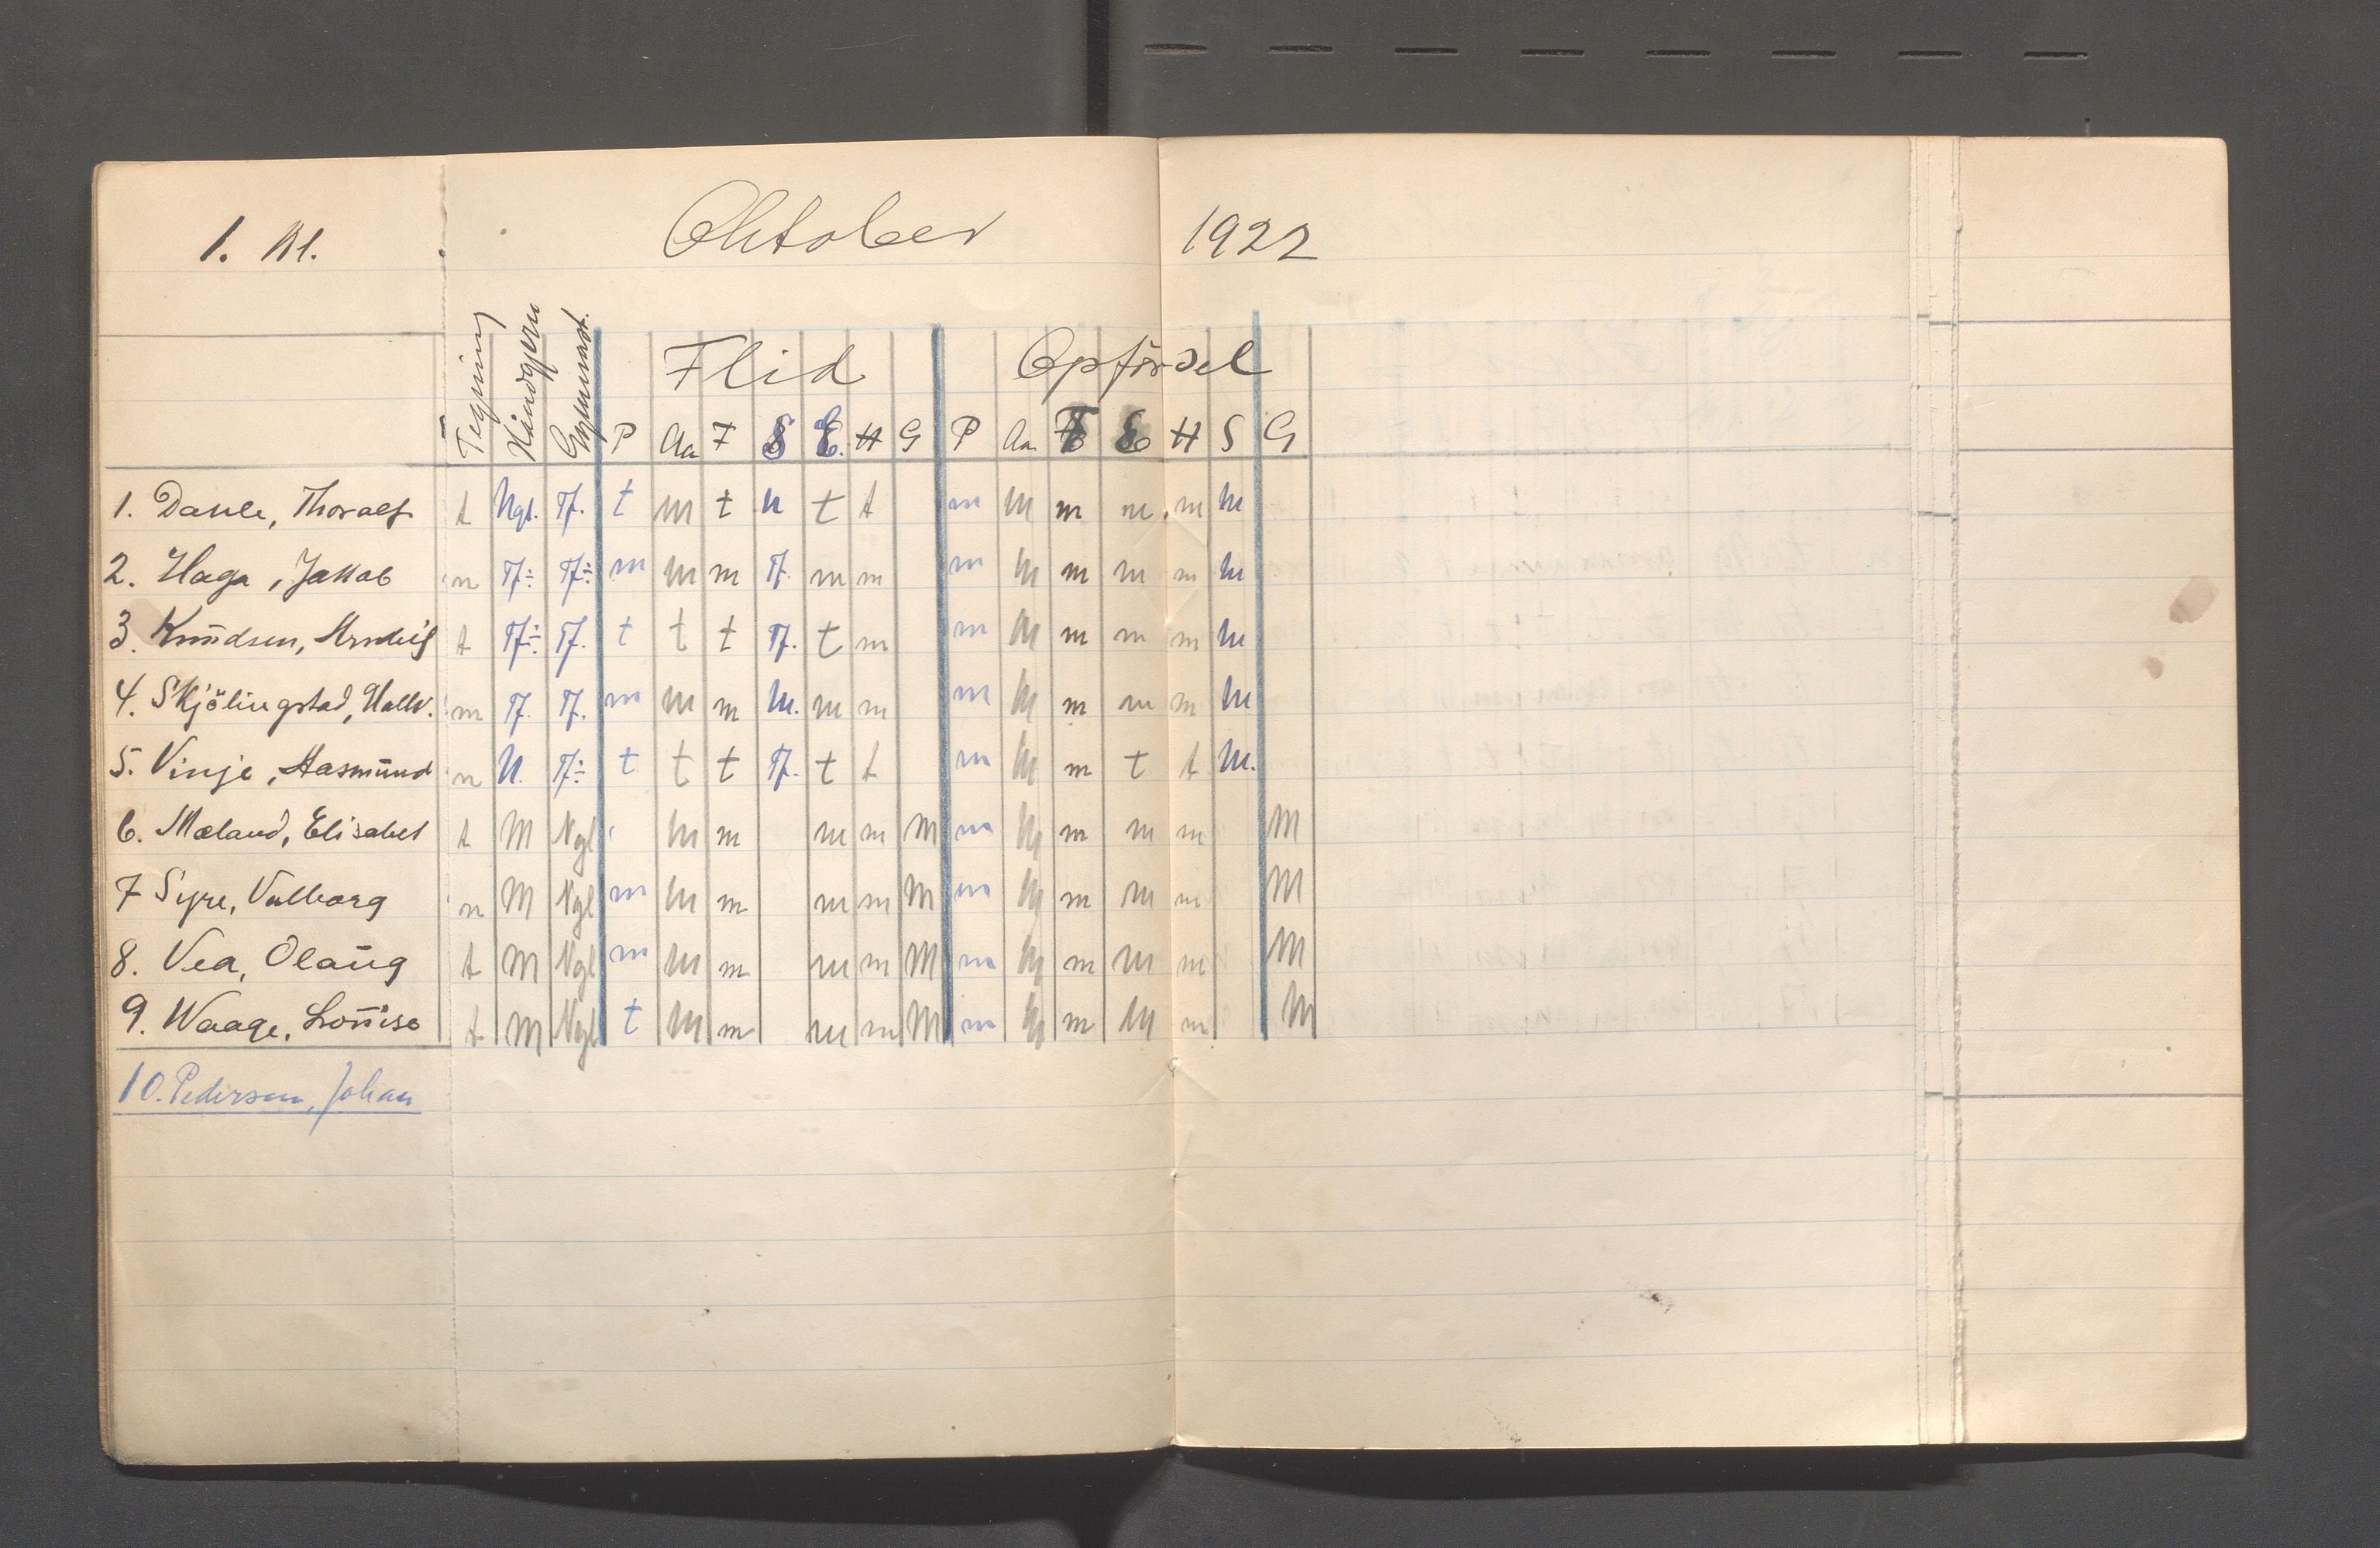 1. Kl. Oktober 1922
Tegning Håndgjern Gymnast. Flid Opförsel
P Aa F S E. H G P Aa F E H S G
1. Dahle, Thoralf t Ngl. Tf. t m t n t t m m m m m m
2. Haga, Jakob n Tf÷ Tf÷ m m m Tf. m m m m m m m m
3. Knudsen, t Tf÷ Tf. t t t Tf. t m m m m m m m
4. Skjölingstad, Hallv. m Tf. Tf. m m m M. m m m m m m m m
5. Vinje, Aasmund n N. Tf÷ t t t Tf. t t m m m t t M.
6. Mæland, Elisabet t M Ngl m m m m M m m m m m M
7 Syre, Valborg n M Ngl m m m m m M m m m m m M
8. Vea, Olaug t M Ngl m m m m m M m m m m m M
9. Waage, Louise t M Ngl t m m m m M m m m m m M
10. Pedersen, Johan